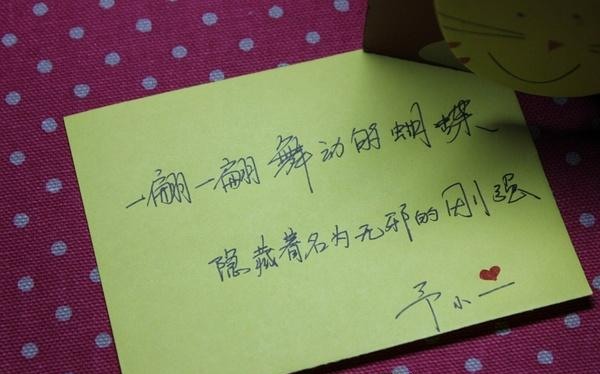 一翩一翩舞动的蝴蝶
隐藏着名为无邪的刚强
予小一